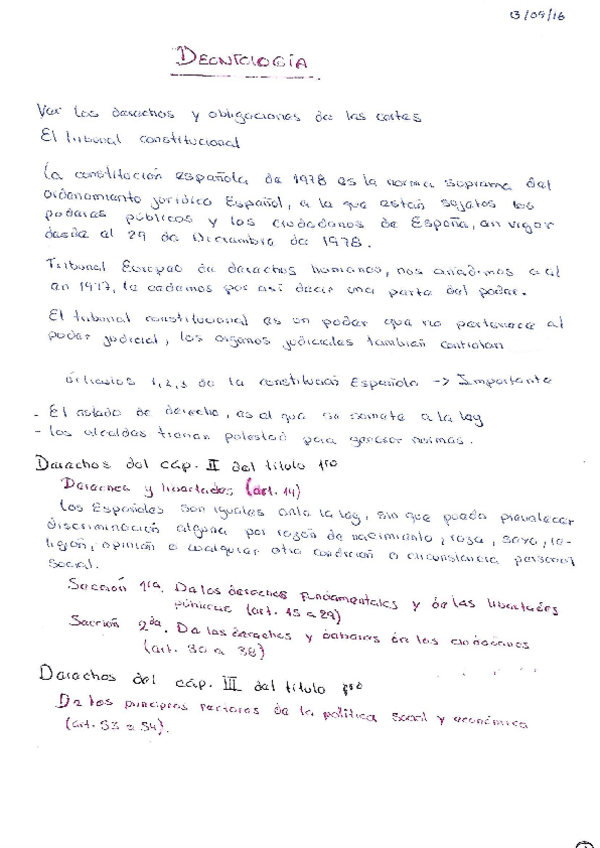 13/09/16
DEONTOLOGÍA
Ver los derechos y obligaciones de las cortes
El tribunal constitucional
La constitución española de 1978 es la norma suprema del
ordenamiento jurídico Español, a la que están sujetos los
poderes públicos y los ciudadanos de España, en vigor
desde el 29 de Diciembre de 1978.
Tribunal Europeo de derechos humanos, nos añadimos a él
en 1977, le cedemos por así decir una parte del poder.
El tribunal constitucional es un poder que no pertenece al
poder judicial, los órganos judiciales también controlan
artículos 1,2,3 de la constitución Española -> Importante
- El estado de derecho, es el que se somete a la ley
- Los alcaldes tienen potestad para generar normas.
Derechos del cap. II del título 1ro
Derechos y libertades (art. 14)
Los Españoles son iguales ante la ley, sin que pueda prevalecer
discriminación alguna por razón de nacimiento, raza, sexo, re-
ligión, opinión o cualquier otra condición o circunstancia personal
social.
Sección 1ra. De los derechos fundamentales y de las libertades
públicas (art. 15 a 29)
Sección 2da. De los derechos y deberes de los ciudadanos
(art. 30 a 38)
Derechos del cap. III del título 1ro
De los principios rectores de la política social y económica
(art. 53 a 54).